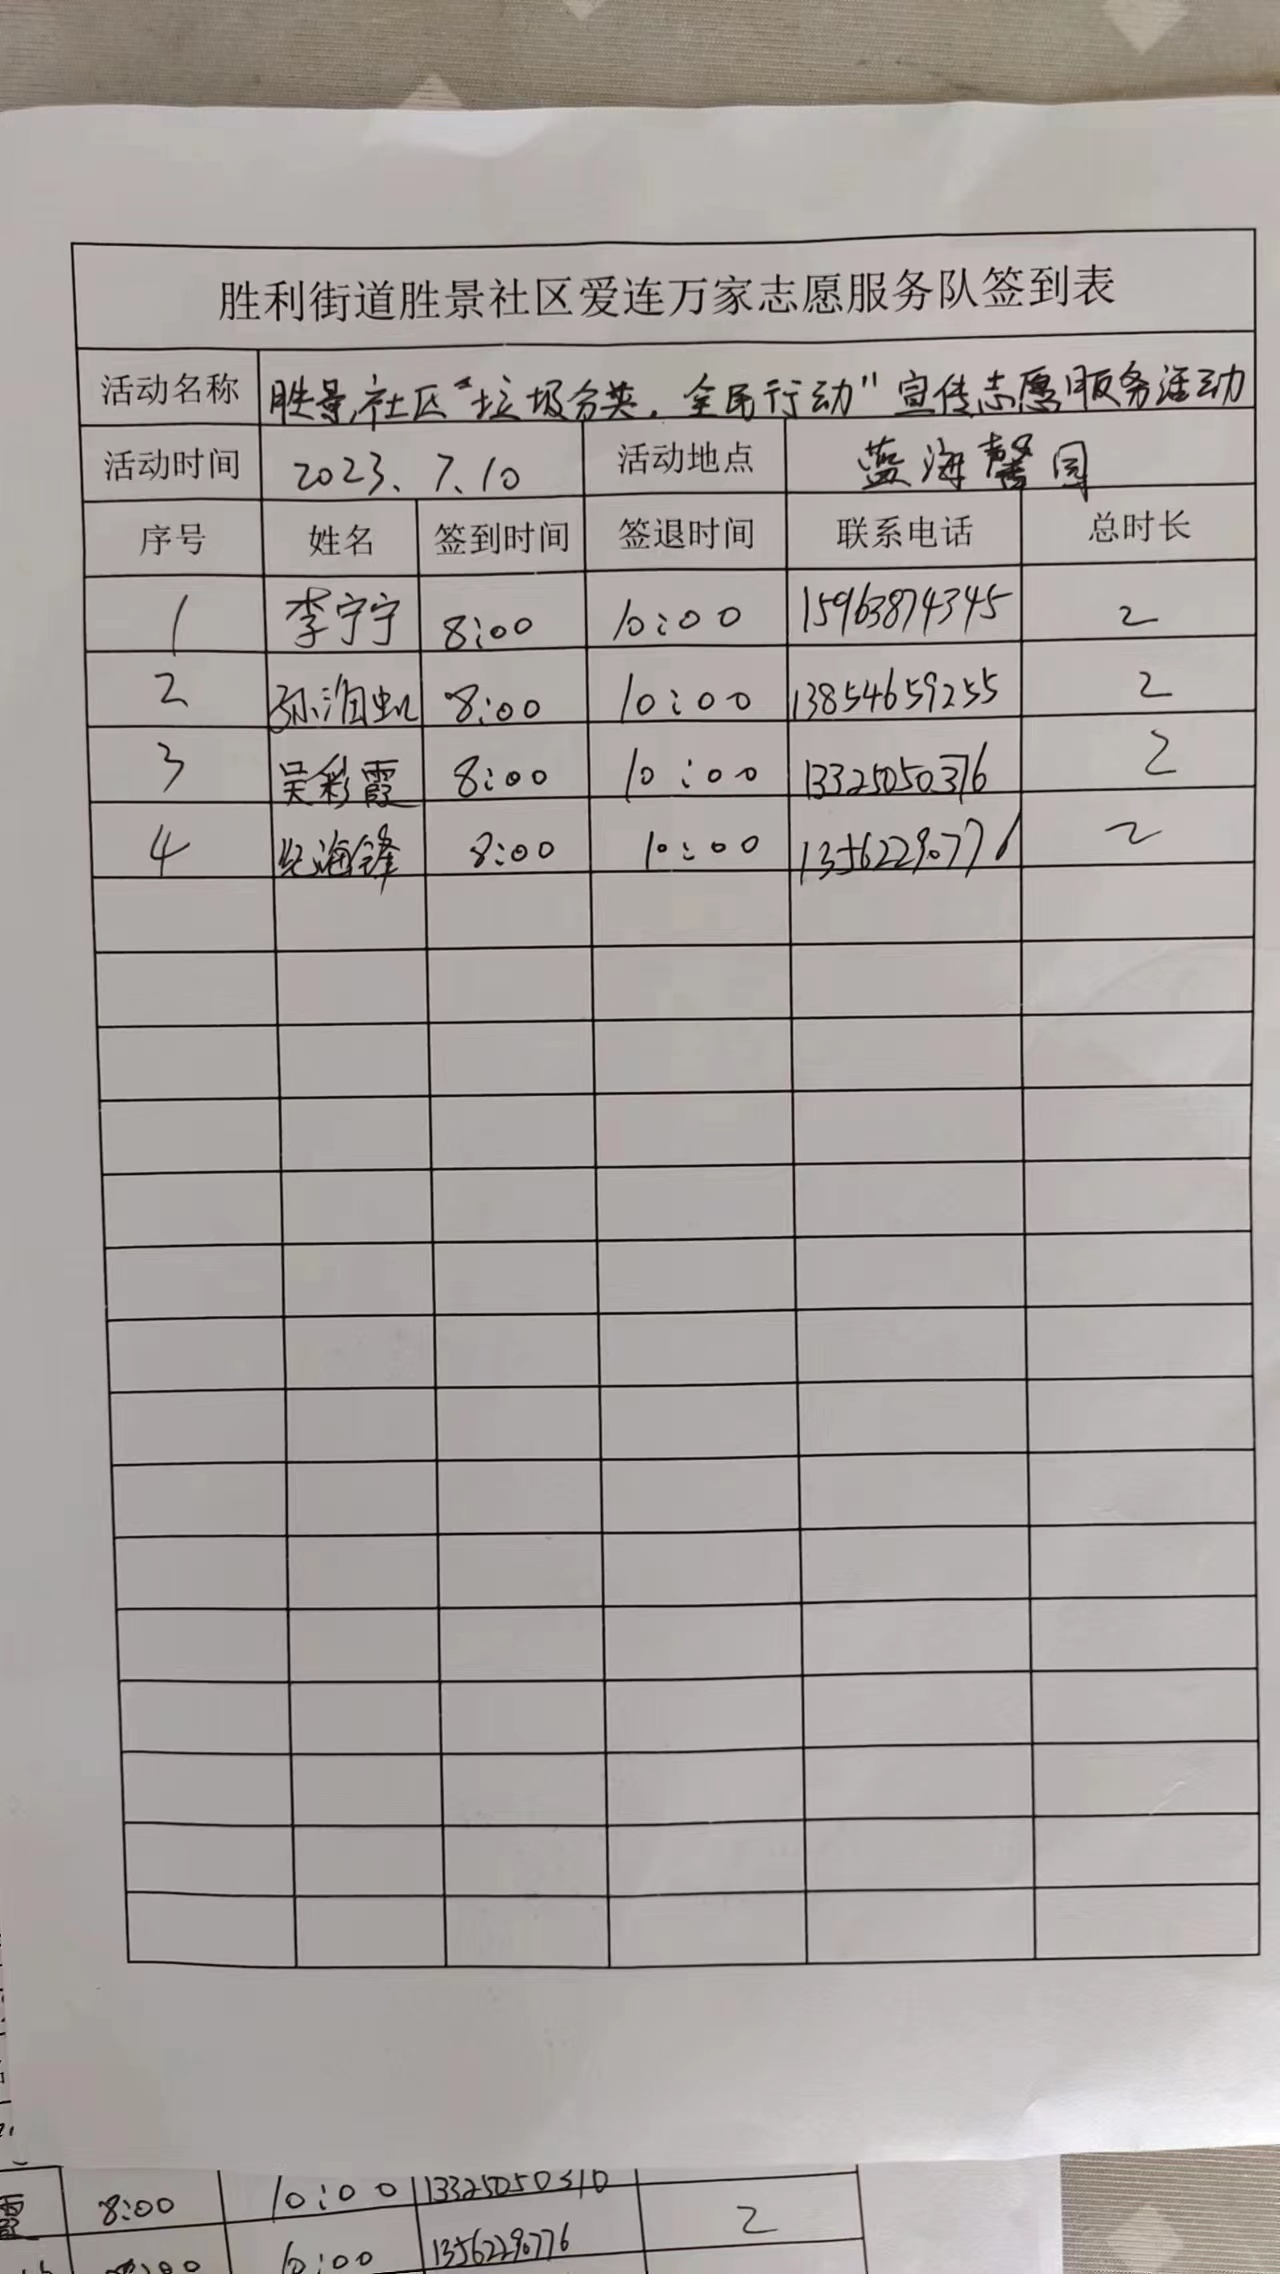 胜利街道胜景社区爱连万家志愿服务队签到表
活动名称 胜景社区“垃圾分类，全民行动”宣传志愿服务活动
活动时间 2023.7.10 活动地点 蓝海馨园
序号 姓名 签到时间 签退时间 联系电话 总时长
1 李宁宁 8:00 10:00 15963874345 2
2 8:00 10:00 13854659255 2
3 吴彩霞 8:00 10:00 13325050376 2
4 纪海锋 8:00 10:00 13562290776 2
霞 8:00 10:00 2
10:00 13562290776